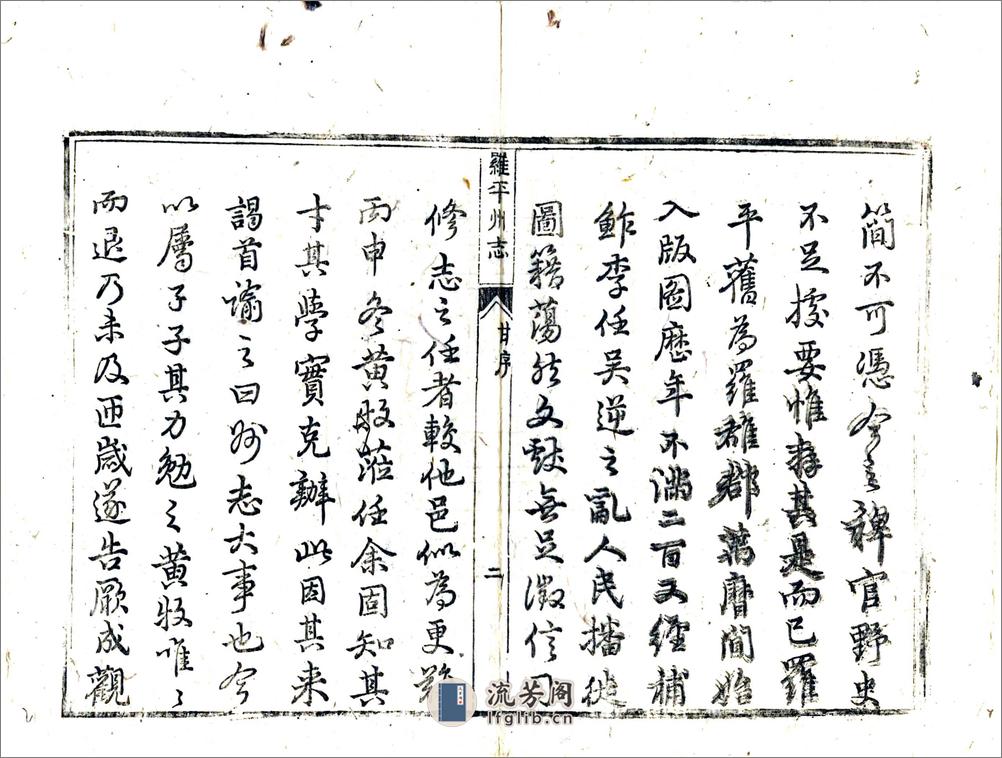 簡不可憑今之稗官野史
不足據要惟存其是而已羅
平舊為羅雄郡萬曆間始
入版圖歷年不滿二百又經補
鮓李任吳逆之亂人民播徙
圖籍蕩然文獻無足徵信司
羅平州志
甘序
二
修志之任者較他邑似為更難
丙申冬黃牧蒞任余固知其
才其學實克辦此因其来
謁首諭之曰州志大事也今
以屬子子其力勉之黃牧唯〻
而退乃未及匝歲遂告厥成觀
流芳阁
lfglib.cn